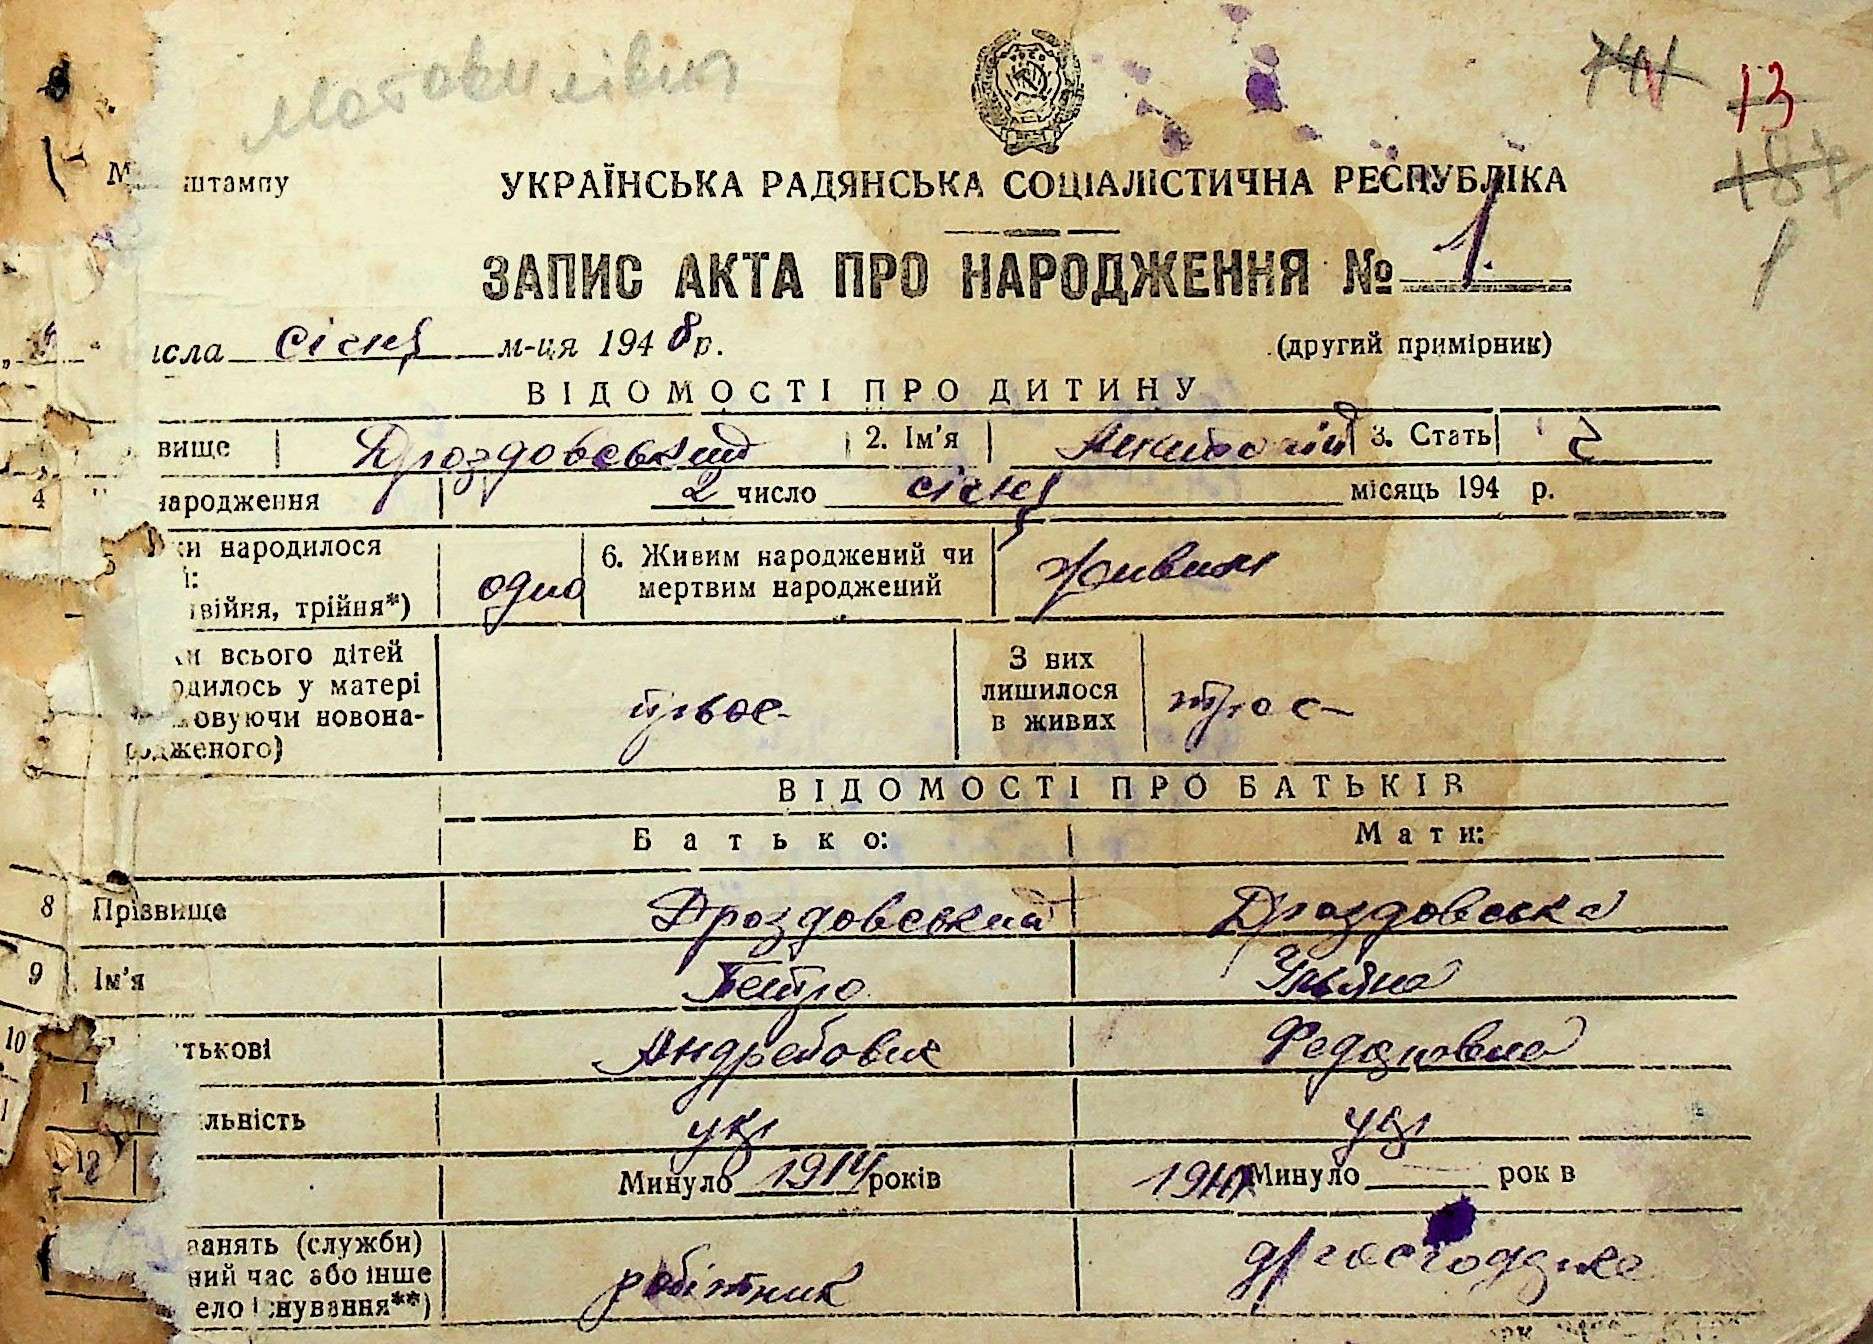 Мотовилівка
13
187
М штампу
УКРАЇНСЬКА РАДЯНСЬКА СОЦІАЛІСТИЧНА РЕСПУБЛІКА
1
ЗАПИС АКТА ПРО НАРОДЖЕННЯ № 1.
исла січня м-ця 1948 р.
(другий примірник)
ВІДОМОСТІ ПРО ДИТИНУ
вище Дроздовський 2. Ім'я Анатолій 3. Стать ч
4 народження 2 число січня місяць 194 р.
5 ки народилося
одно
6. Живим народжений чи
мертвим народжений
живим
війня, трійня*)
ки всього дітей
одилось у матері
овуючи новона-
родженого)
троє
З них
лишилося
в живих
троє
ВІДОМОСТІ ПРО БАТЬКІВ
Батько: Мати:
8 Прізвище Дроздовський Дроздовська
9 Ім'я Петро Ульяна
10 тькові Андреєвич Федоровна
льність укр укр
12 Минуло 1914 років Минуло рок в
занять (служби)
ний час або інше
ело існування**)
робітник